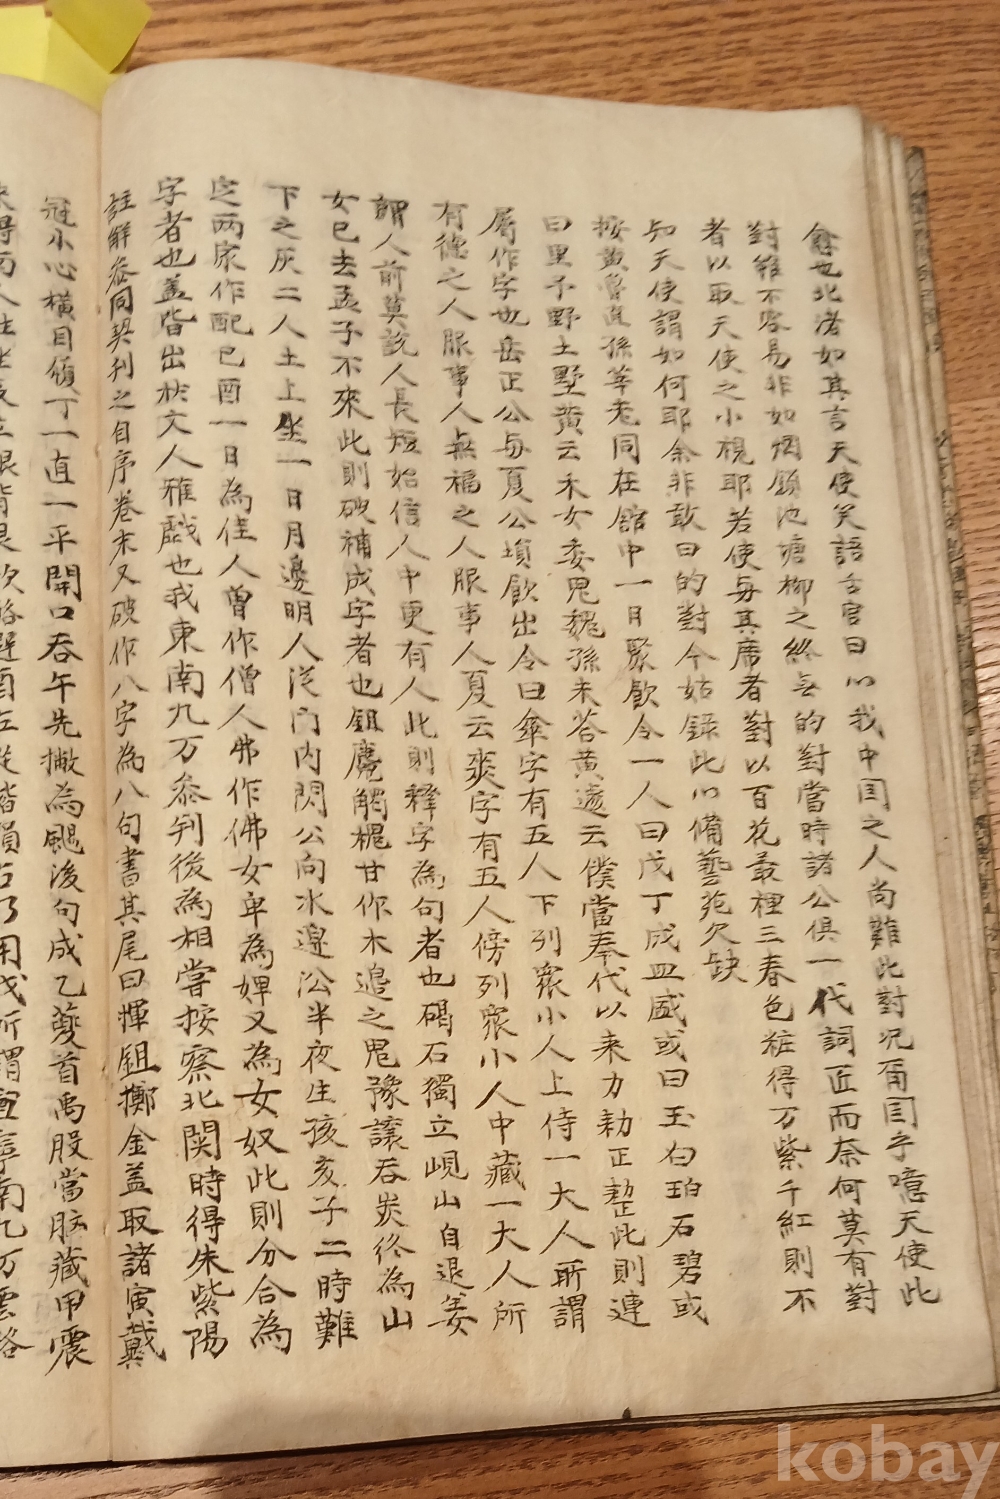 愈也北渚如其言天使笑語舌官曰以我中国之人尚難此對况甭国乎噫天使此
對雖不容易非如烟鎖池塘柳之終無的對當時諸公俱一代詞匠而奈何莫有對
者以取天使之小視耶若使毎其席者對以百花叢裡三春色粧得万紫千紅則不
知天使謂如何耶余非敢曰的對今姑録此以備藝苑欠缺
按黄魯直孫莘老同在舘中一日聚飲令一人曰戊丁成皿盛或曰玉白珀石碧或
曰里予野土墅黄云禾女委鬼魏孫未答黄遽云僕當奉代以来力勑正整此則連
屬作字也岳正公与夏公塤飮出令曰傘字有五人下列衆小人上侍一大人所謂
有德之人服事人無福之人服事人夏云爽字有五人傍列衆小人中藏一大人所
謂人前莫説人長短始信人中更有人此則釋字為句者也碣石獨立峴山自退姜
女已去孟子不來此則破補成字者也鉏麑觸槐甘作木邉之鬼豫讓呑炭終為山
下之灰二人土上坐一日月邊明人従门内閃公向水邉㳂半夜生孩亥子二時難
定两家作配已酉一日為佳人曽作僧人弗作佛女卑為婢又為女奴此則分合為
字者也盖皆出於文人雅戱也我東南九万叅判後為相嘗按察北関時得朱紫陽
註解叅同契刋之自序卷末又破作八字為八句書其尾曰揮鉏擲金盖取諸寅戴
冠小心横目傾丁一直一平開口呑午先撇為颺後句成乙夔首禹股當脳藏甲震